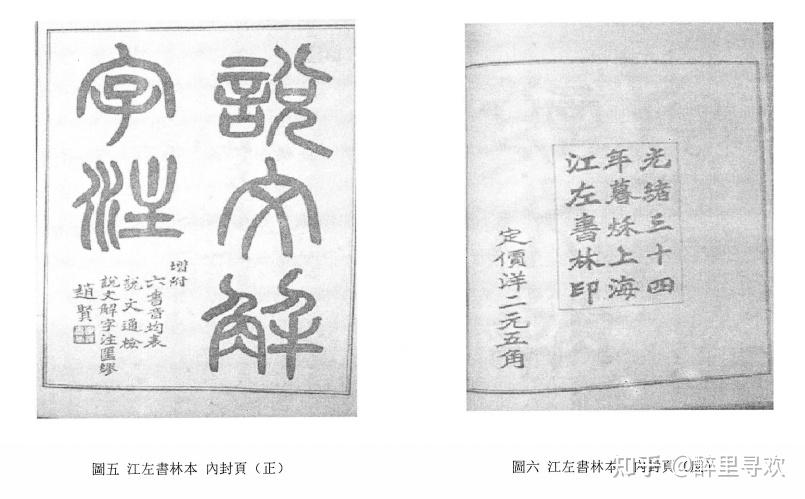 說文解
字注
增附
六書音均表
說文通檢
說文解字注匡繆
趙賢
光緒三十四
年暮秋上海
江左書林印
定價洋二元五角
圖五 江左書林本 內封頁（正）
圖六 江左書林本 內封頁
知乎 @辞里寻欢